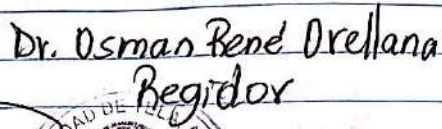 Dr. Osman René Orellana
Regidor
DAD DE